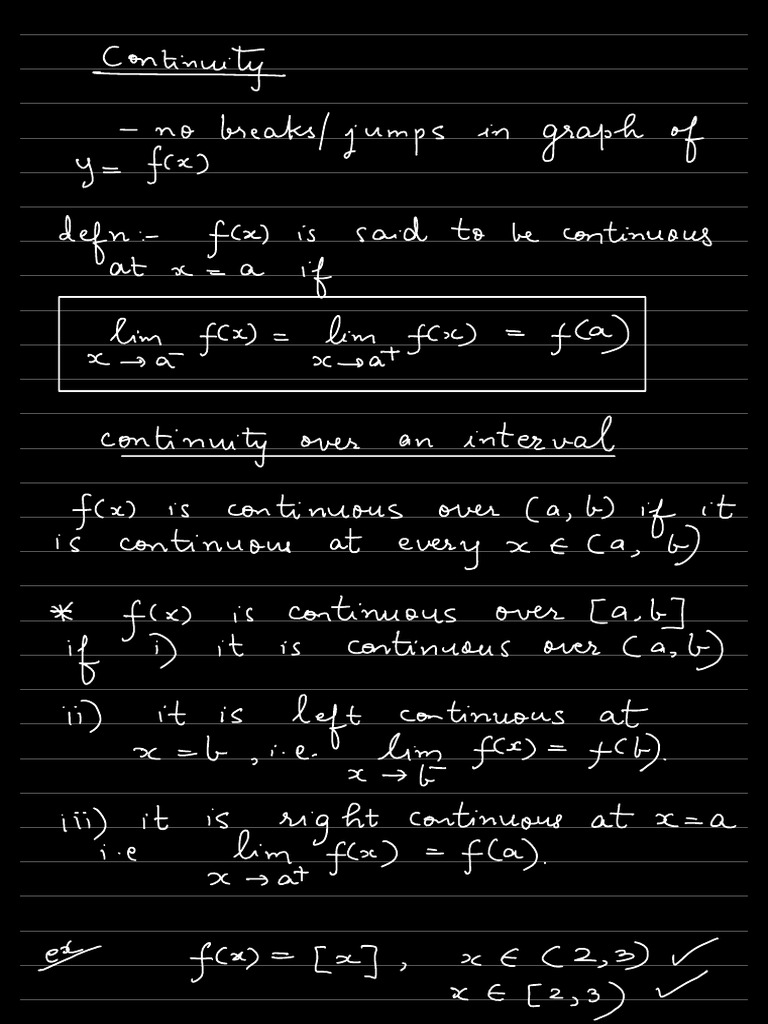 Continuity
– no breaks/jumps in graph of
y = f(x)
defn:- f(x) is said to be continuous
at x = a if
lim f(x) = lim f(x) = f(a)
x → a⁻ x → a⁺
continuity over an interval
f(x) is continuous over (a, b) if it
is continuous at every x ∈ (a, b)
* f(x) is continuous over [a,b]
if i) it is continuous over (a,b)
ii) it is left continuous at
x = b , i.e. lim f(x) = f(b).
x → b⁻
iii) it is right continuous at x = a
i.e lim f(x) = f(a).
x → a⁺
ex f(x) = [x] , x ∈ (2,3) ✓
x ∈ [2,3) ✓